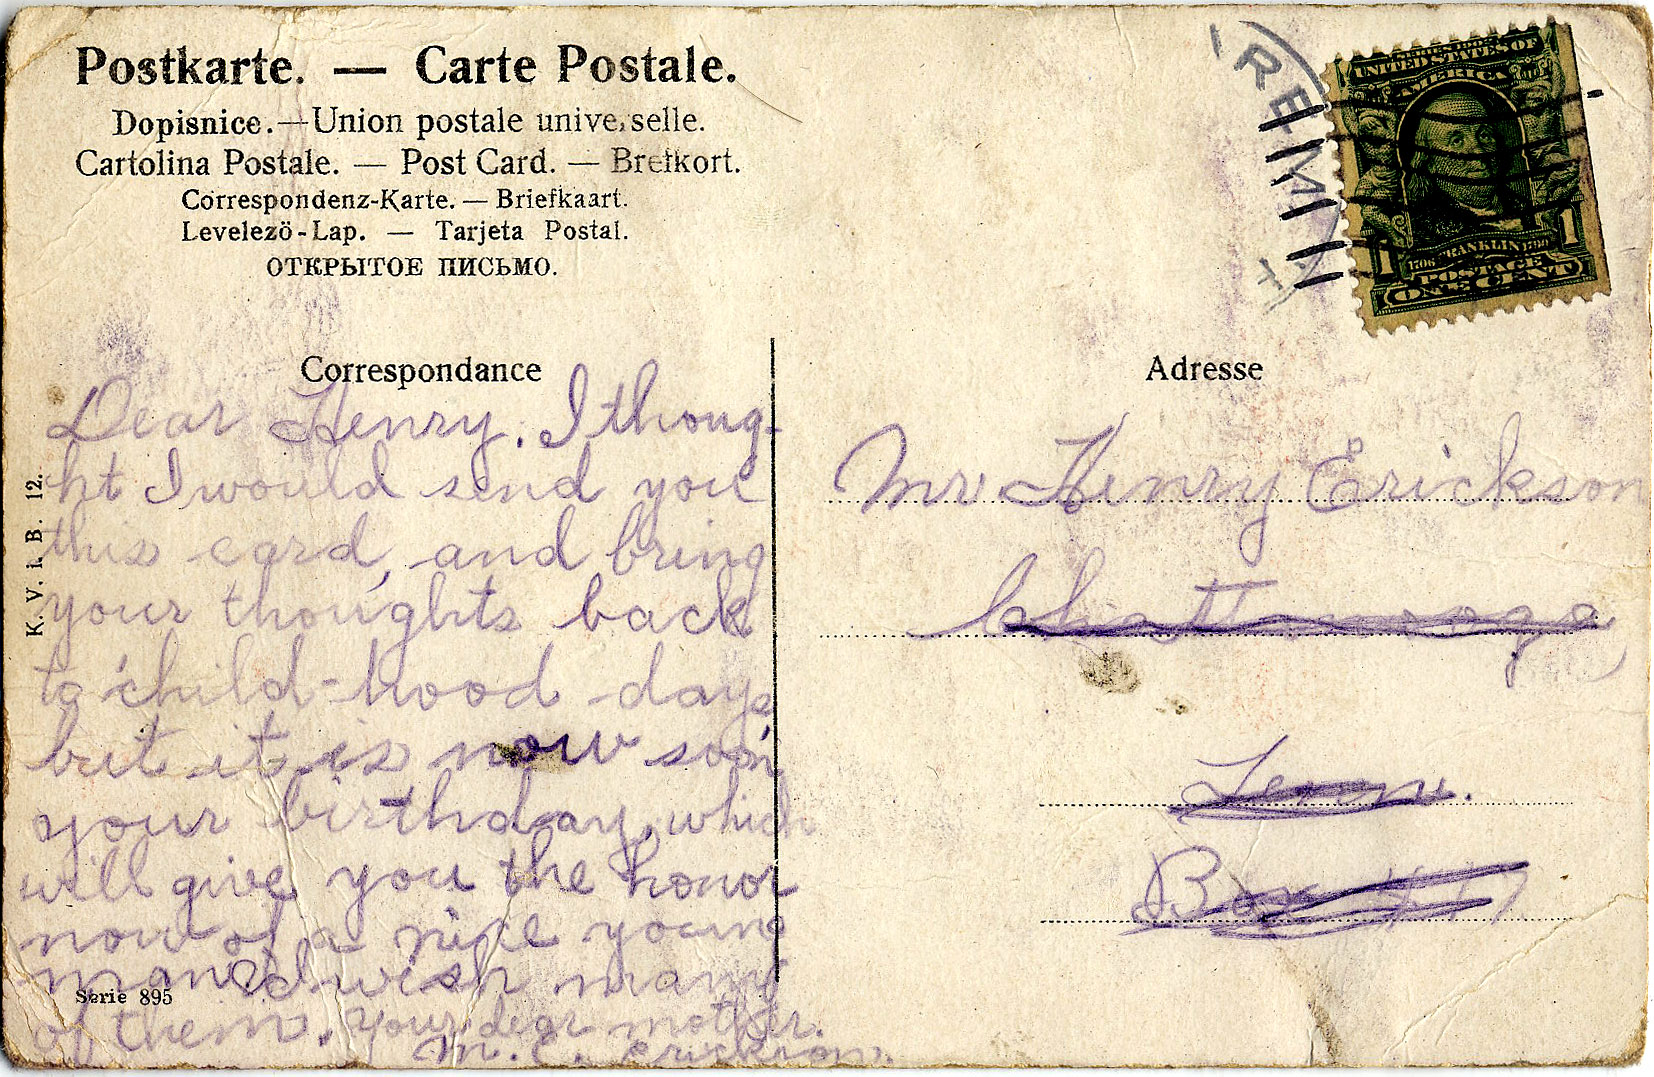 Postkarte. — Carte Postale.
Dopisnice. — Union postale unive,selle.
Cartolina Postale. — Post Card. — Brefkort.
Correspondenz-Karte. — Briefkaart.
Levelezö-Lap. — Tarjeta Postal.
ОТКРЫТОЕ ПИСЬМО.
REM
SERIES 1902
UNITED STATES OF
AMERICA
1706 FRANKLIN 1790
1 1
POSTAGE
ONE CENT
Correspondance
Dear Henry. I thoug-
ht I would send you
this card, and bring
your thoughts back
to child-hood days,
but it is now soon
your birthday, which
will give you the honor
now of a nice young
man I wish many
of them. Your dear mother.
M. E. Erickson.
K. V. i. B. 12.
Serie 895
Adresse
Mr Henry Erickson
Chattanooga
Tenn.
Box